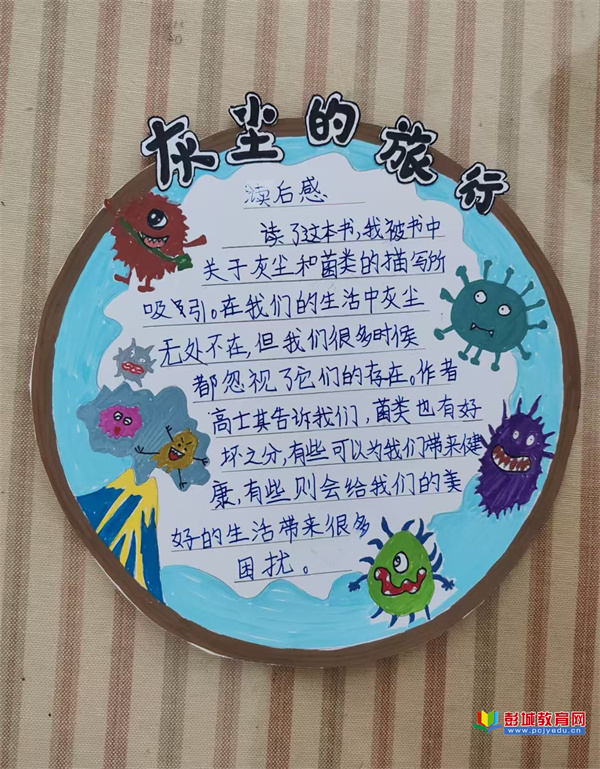 灰尘的旅行
读后感
读了这本书,我被书中
关于灰尘和菌类的描写所
吸引。在我们的生活中灰尘
无处不在,但我们很多时候
都忽视了它们的存在。作者
高士其告诉我们,菌类也有好
坏之分,有些可以为我们带来健
康,有些则会给我们的美
好的生活带来很多
困扰。
彭城教育网
www.pcjyedu.cn